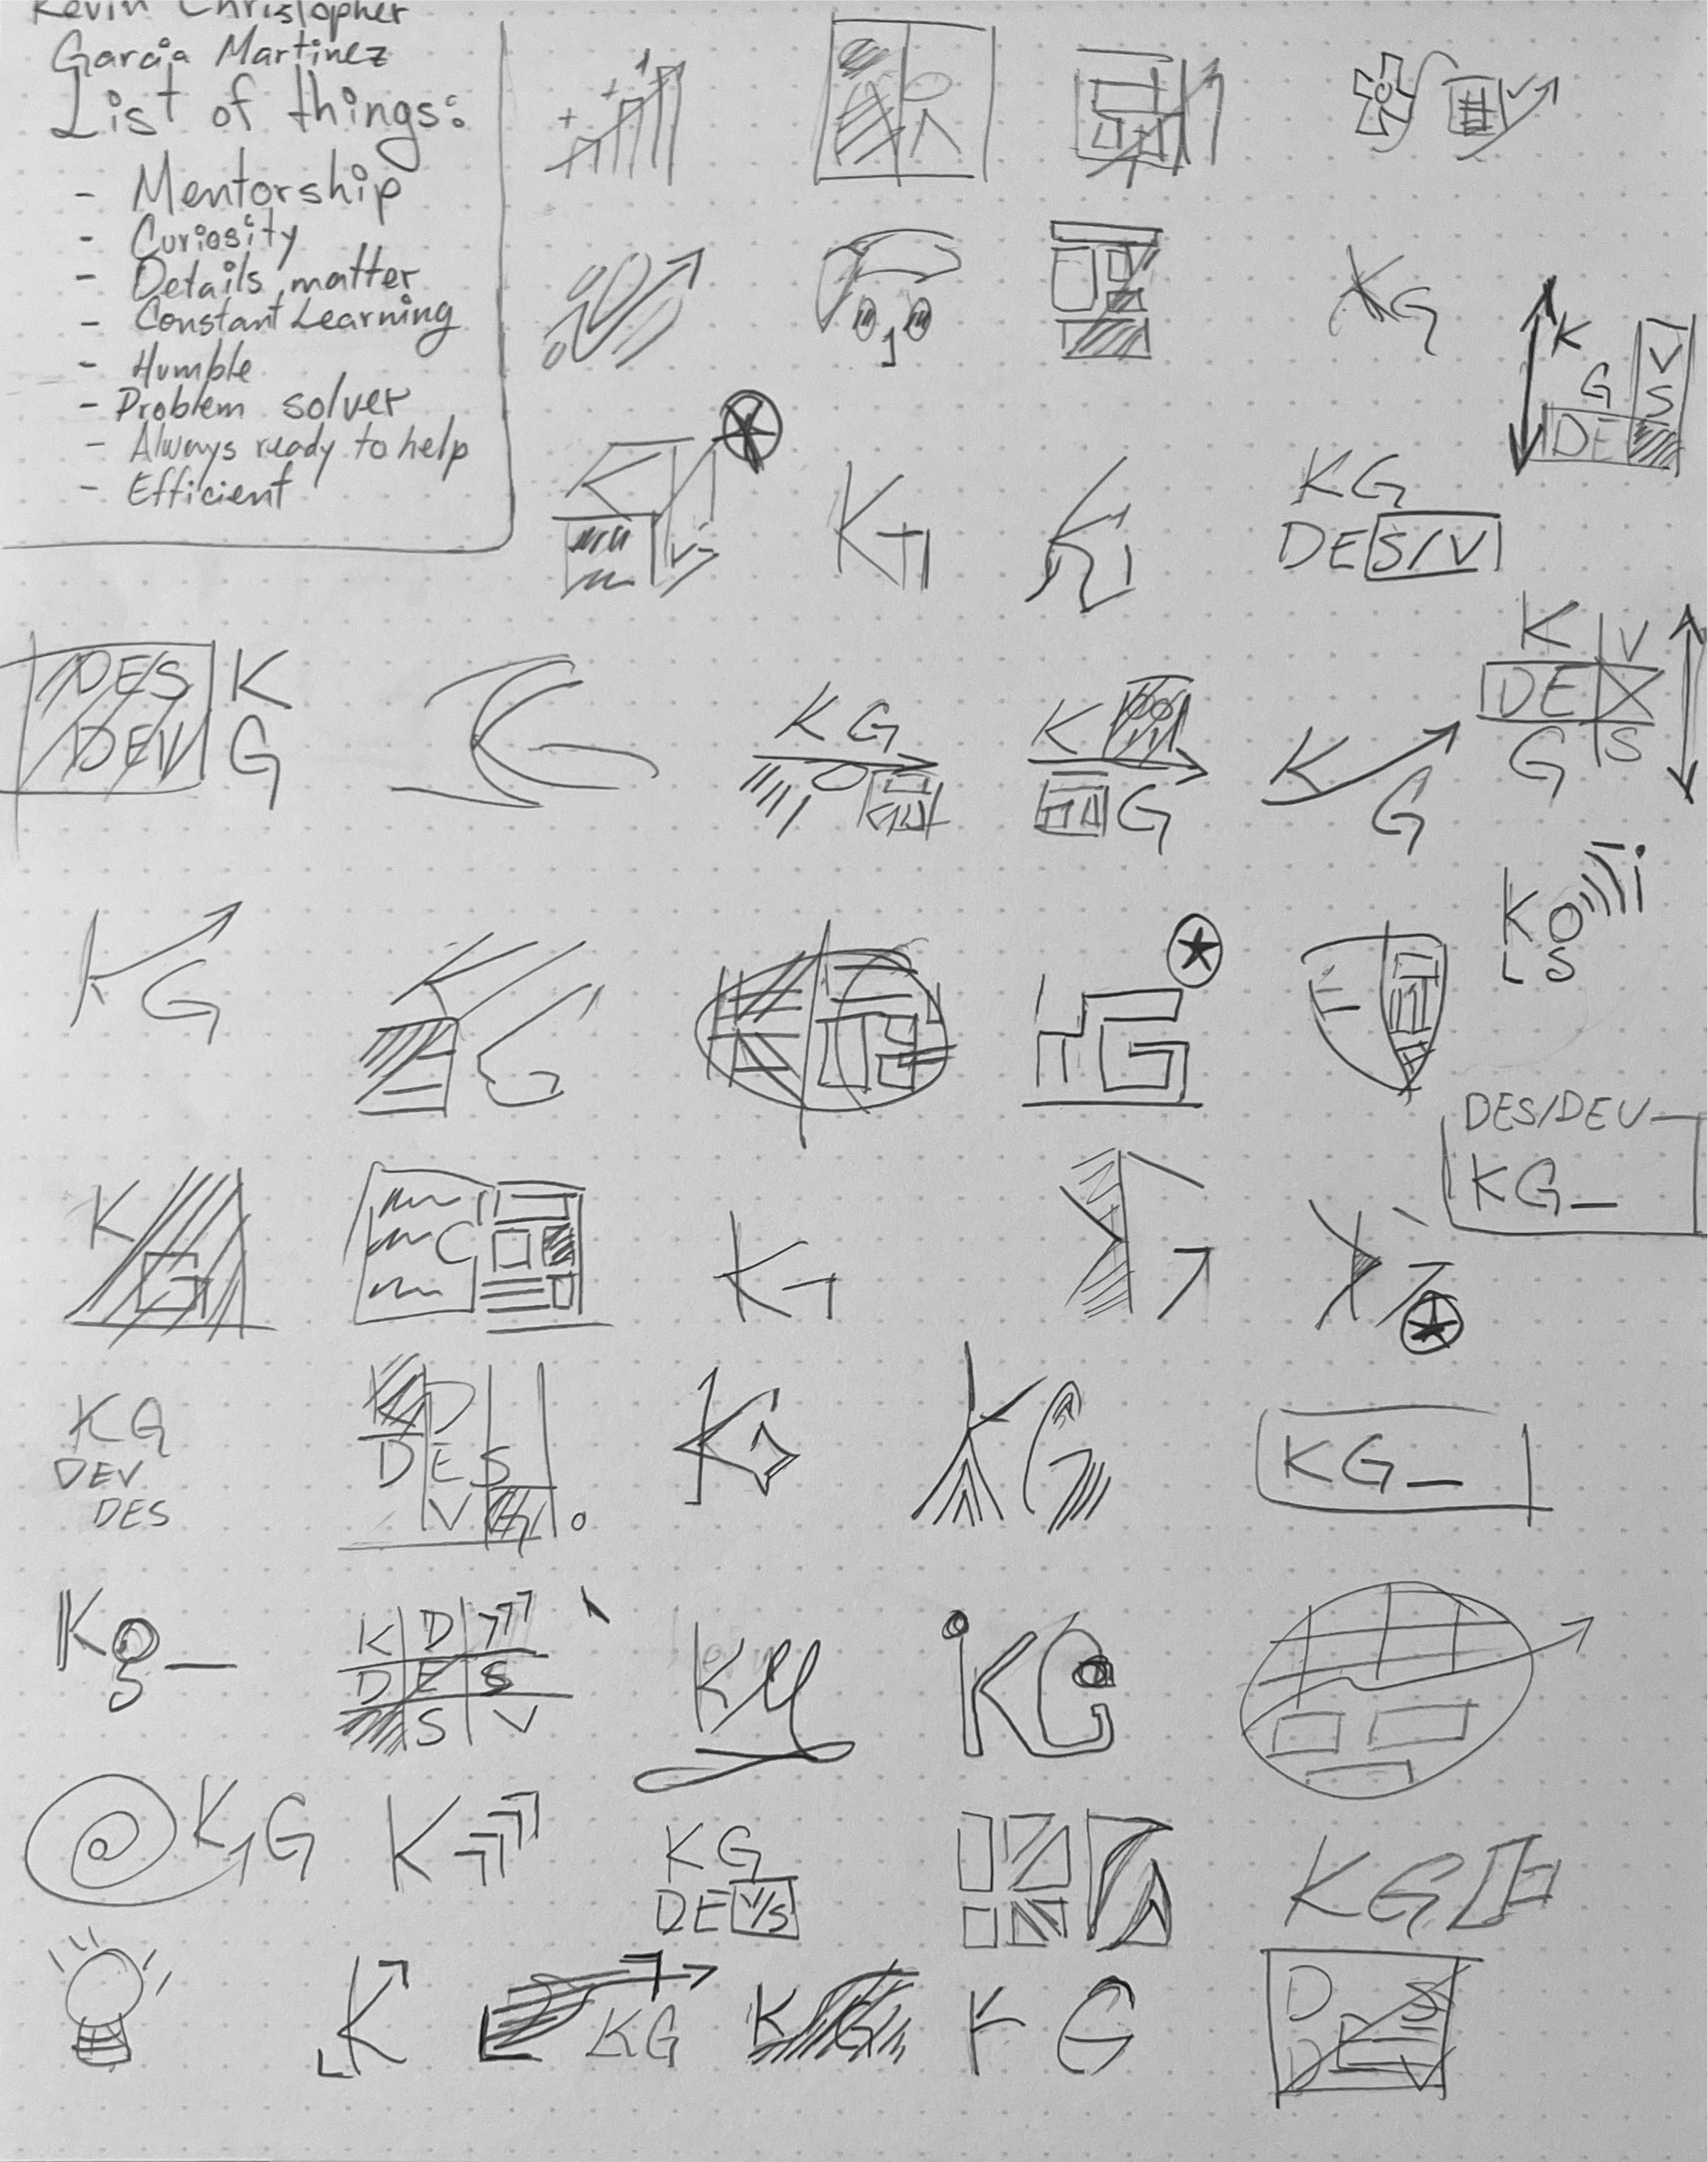 Kevin Christopher
Garcia Martinez
List of things:
- Mentorship
- Curiosity
- Details matter
- Constant Learning
- Humble
- Problem solver
- Always ready to help
- Efficient
KG
K
G
V
S
DE
K
KG
DES/V
DES
DEV
K
G
KG
K
G
K
G
K
V
DE
G
S
KG
K
G
K
DES/DEV
KG_
K
G
K
KG
DEV
DES
K
D
DES
V
KG
KG_
Kg_
K D
D E S
S V
KG
KG
K
KG
DEV/S
KG
K
KG
KG
KG
D S
D E
V